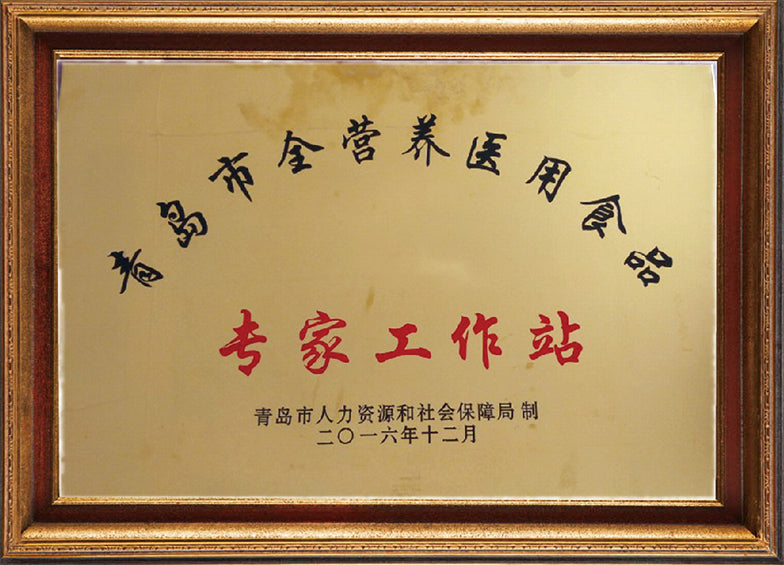 青岛市全营养医用食品
专家工作站
青岛市人力资源和社会保障局 制
二〇一六年十二月